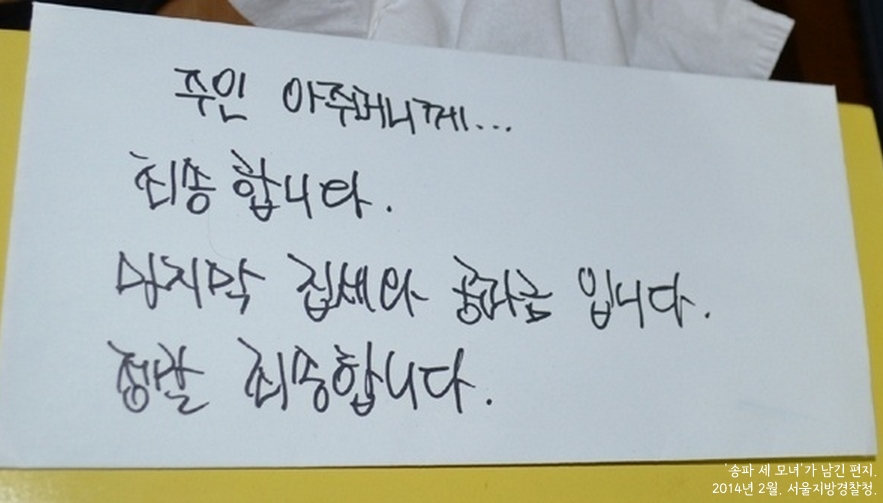 주인 아주머니께...
죄송합니다.
마지막 집세와 공과금 입니다.
정말 죄송합니다.
'송파 세 모녀'가 남긴 편지.
2014년 2월. 서울지방경찰청.